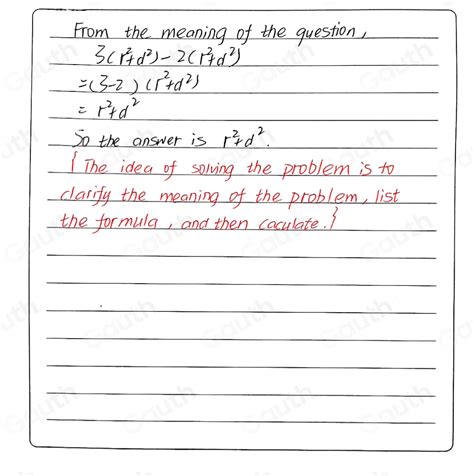 From the meaning of the question,
3(r²+d²)-2(r²+d²)
=(3-2)(r²+d²)
= r²+d²
So the answer is r²+d².
{The idea of solving the problem is to
clarify the meaning of the problem, list
the formula, and then caculate.}
Gauth
Gauth
Gauth
Gauth
Gauth
Gauth